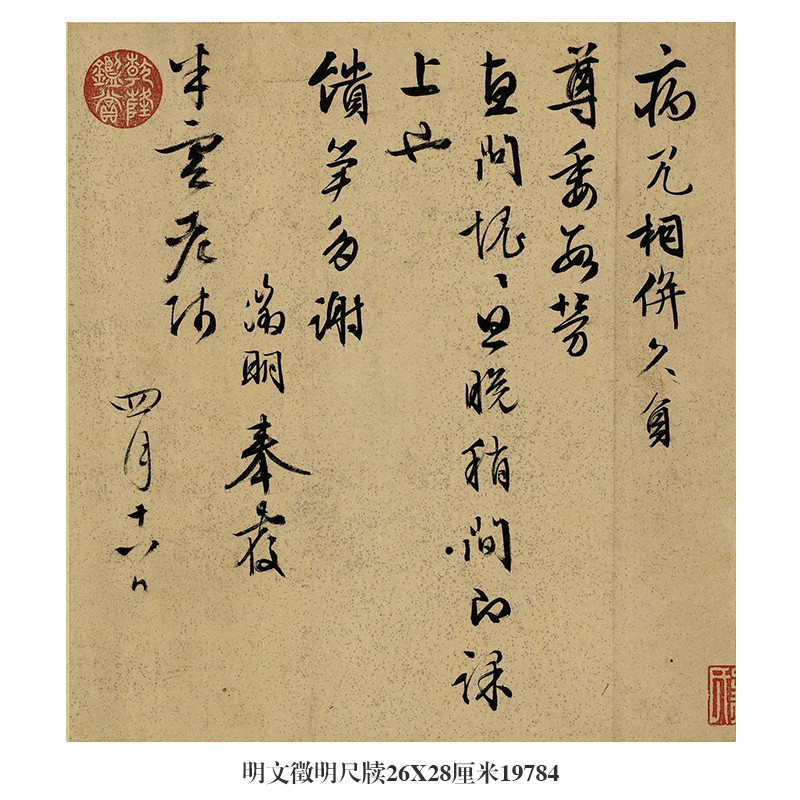 病冗相併久負
尊委每勞
直問愧愧旦晚稍間即課
上也
饋筆多謝
徵明奉覆
半雲老師
四月十六日
乾隆鑑賞
明文徵明尺牍26X28厘米19784